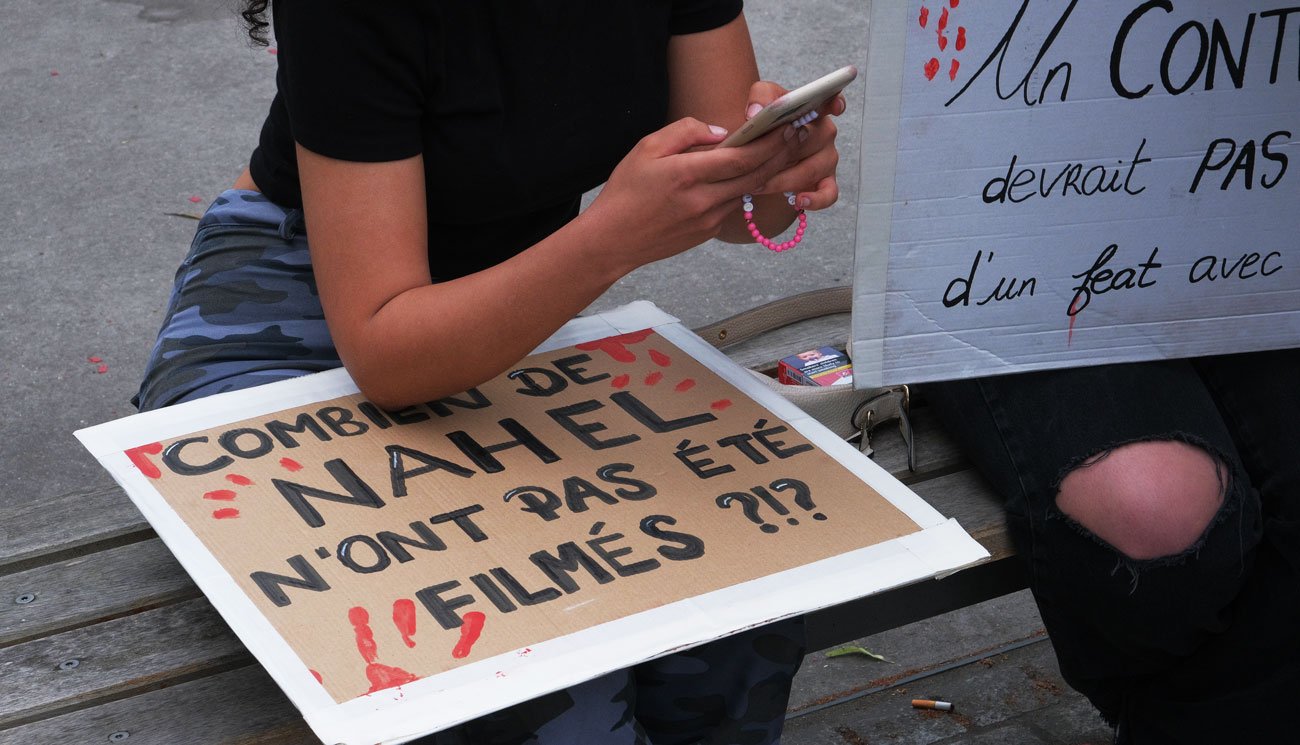 COMBIEN DE
NAHEL
N'ONT PAS ÉTÉ
FILMÉS ?!?
Un
devrait PAS
d'un feat avec